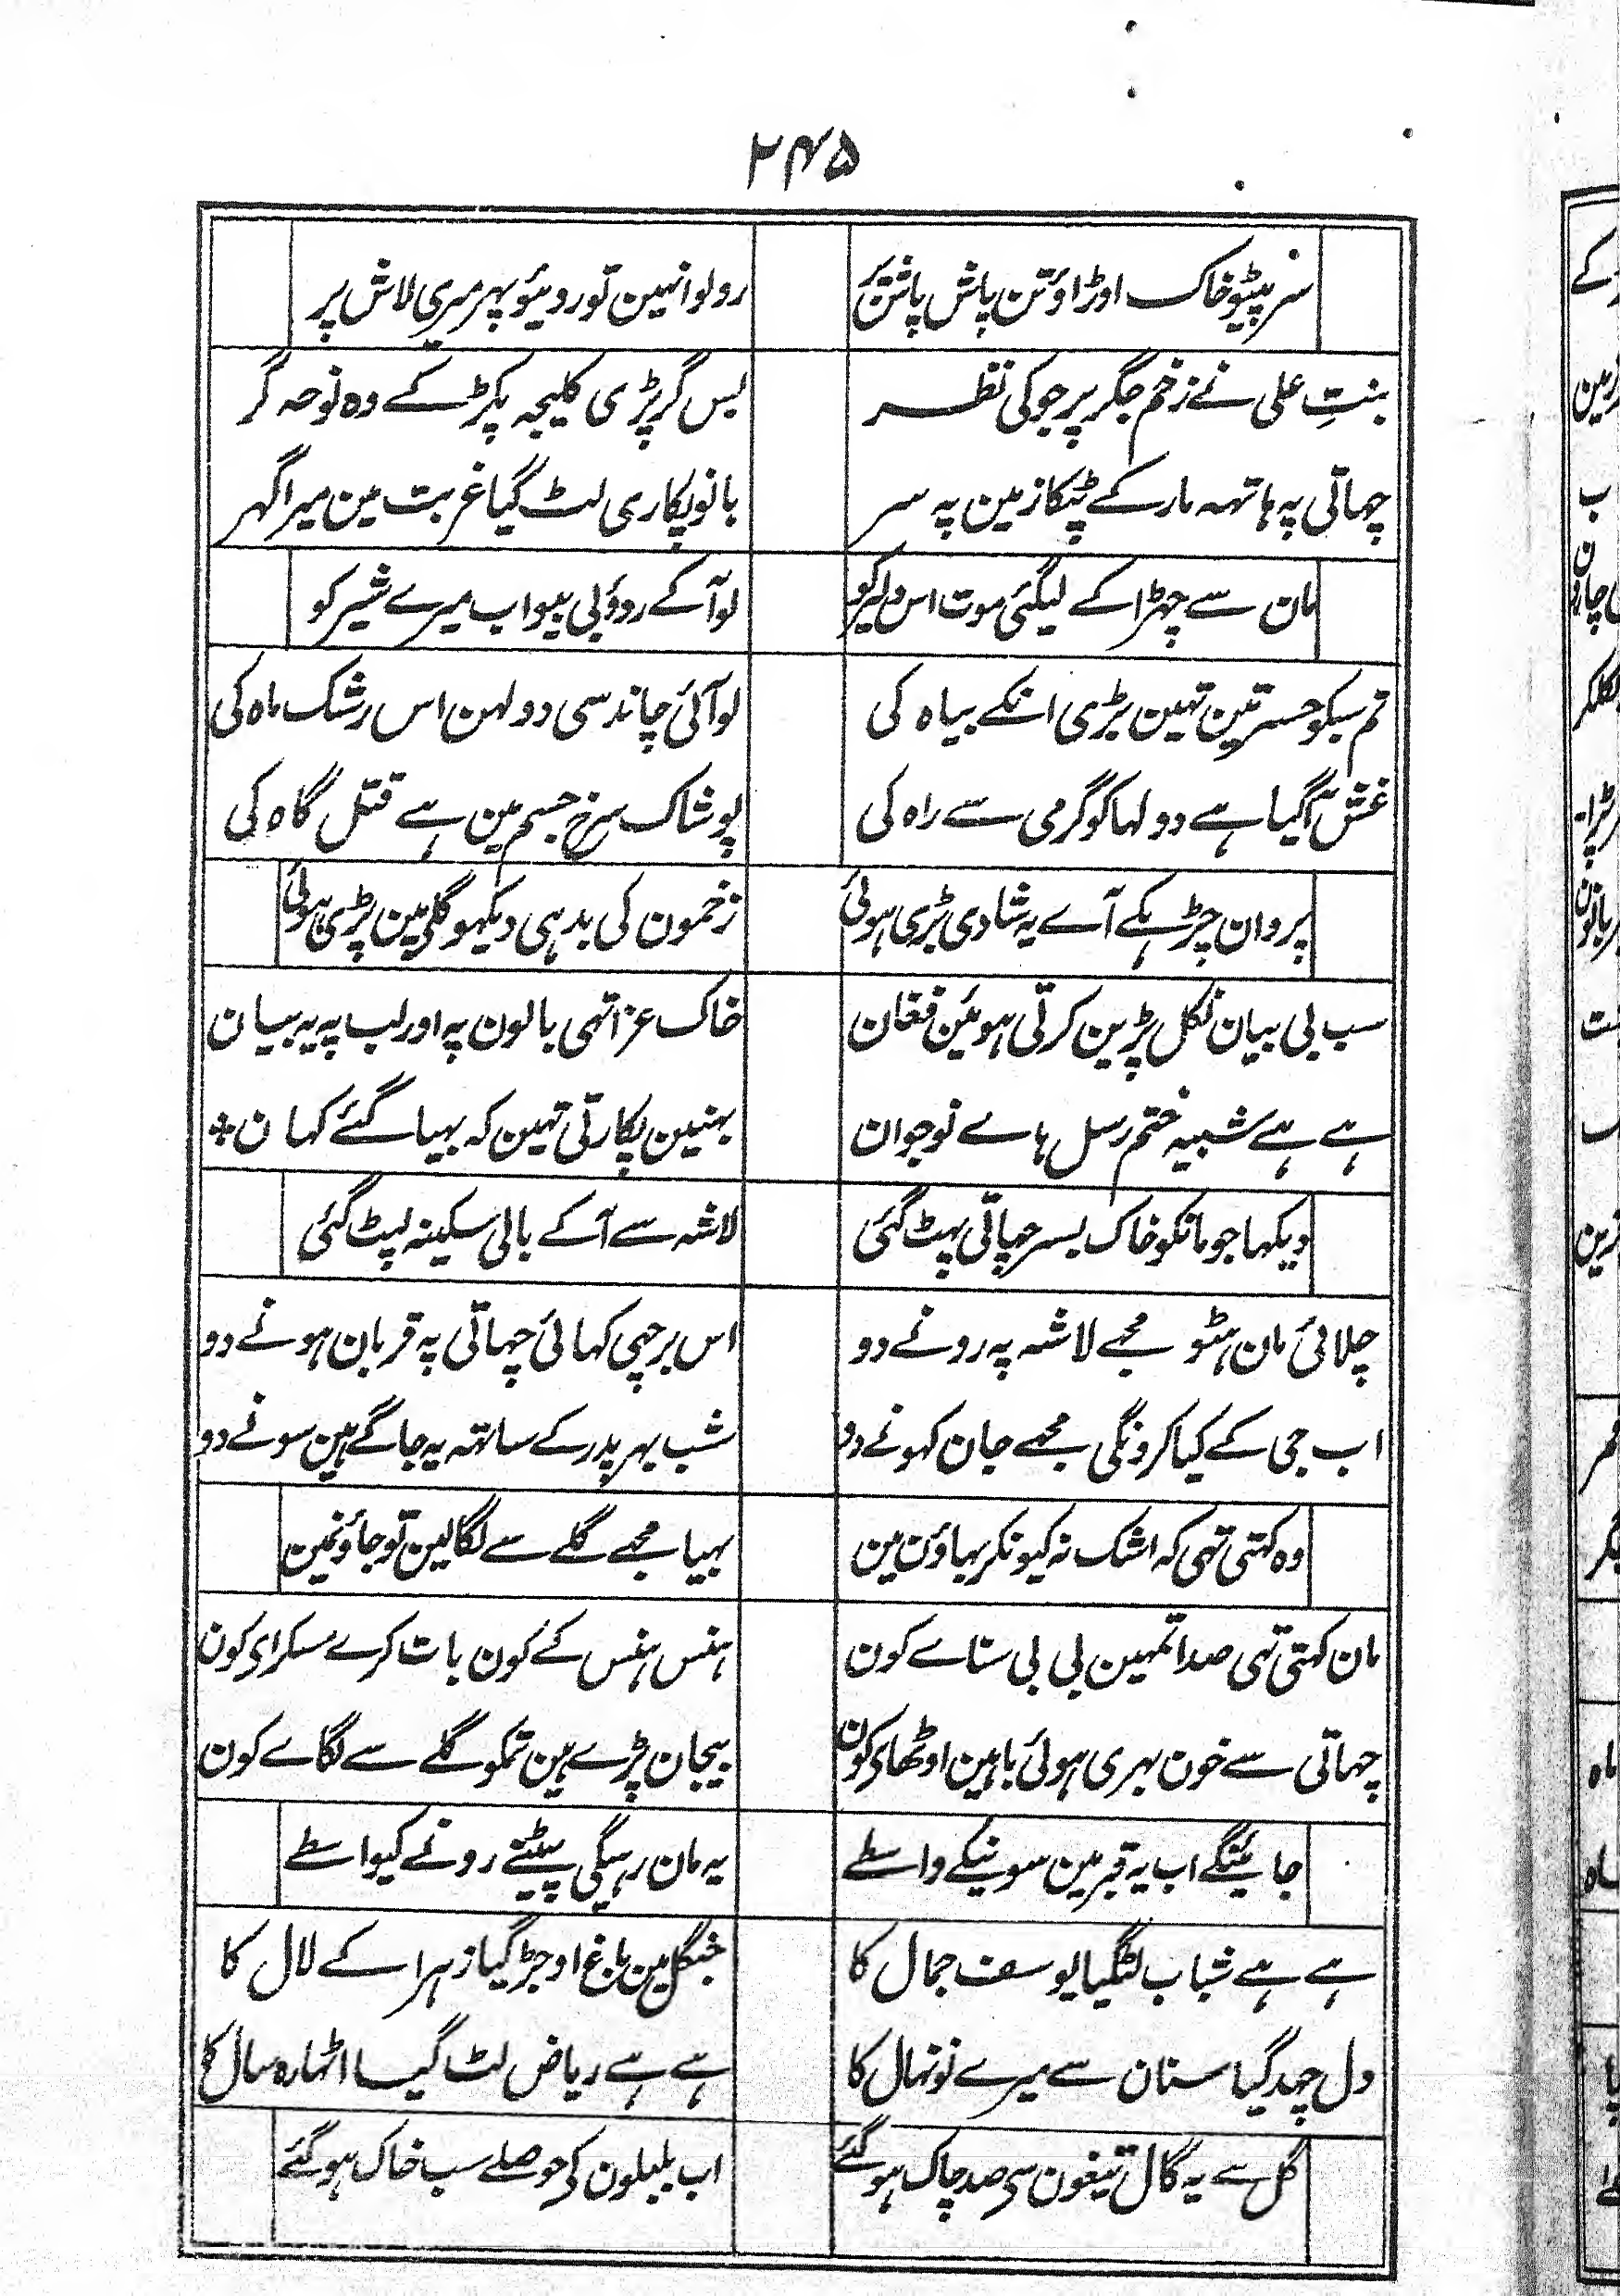 ۲۴۵
سر پیٹیو خاک اوڑاؤ تن پاش پاش پر رولو انہین تو روئیو پہر میری لاش پر
بنتِ علی نے زخم جگر پر جو کی نظر بس گر پڑی کلیجہ پکڑ کے وہ نوحہ گر
چہاتی پہ ہاتہہ مار کے پٹکا زمین پہ سر بانو پکاری لٹ گیا غربت مین میرا گہر
مان سے چہڑا کے لیگئی موت اس دلیر کو لو آکے روؤ بی بیو اب میرے شیر کو
تم سبکو حسرتین تہین بڑی انکے بیاہ کی لو آئی چاند سی دولہن اس رشک ماہ کی
غش آگیا ہے دولہا کو گرمی سے راہ کی پوشاک سرخ جسم مین ہے قتل گاہ کی
پروان چڑہکے آے یہ شادی بڑی ہوئی زخمون کی بدہی دیکہو گلی مین پڑی ہوئی
سب بی بیان نکل پڑین کرتی ہوئین فغان خاک عزا تہی بالون پہ اور لب پہ یہ بیان
ہے ہے شبیہ ختم رسل ہاے نوجوان بہنین پکارتی تہین کہ بہیا گئے کہان
دیکہا جو مانکو خاک بسر چہاتی پہٹ گئی لاشہ سے آکے بالی سکینہ لپٹ گئی
چلائی مان ہٹو مجہے لاشہ پہ رونے دو اس برچہی کہائی چہاتی پہ قربان ہونے دو
اب جی کے کیا کرونگی مجہے جان کہونے دو شب بہر پدر کے ساتہہ یہ جاگے ہین سونے دو
وہ کہتی تہی کہ اشک نہ کیونکر بہاؤن مین بہیا مجہے گلے سے لگالین تو جاؤنمین
مان کہتی تہی صدا تمہین بی بی سناے کون ہنس ہنس کے کون بات کرے مسکرای کون
چہاتی سے خون بہری ہوئی باہین اوٹھای کون بیجان پڑے ہین تمکو گلے سے لگاے کون
جائینگے اب یہ قبر مین سونیکے واسطے یہ مان رہیگی پیٹنے رونے کیواسطے
ہے ہے شباب لٹگیا یوسف جمال کا جنگل مین باغ اوجڑ گیا زہرا کے لال کا
دل چہد گیا سنان سے میرے نونہال کا ہے ہے ریاض لٹ گیا اٹہارہ سال کا
گل سے یہ گال تیغون سی صد چاک ہوگئے اب بلبلون کی حوصلے سب خاک ہوگئے